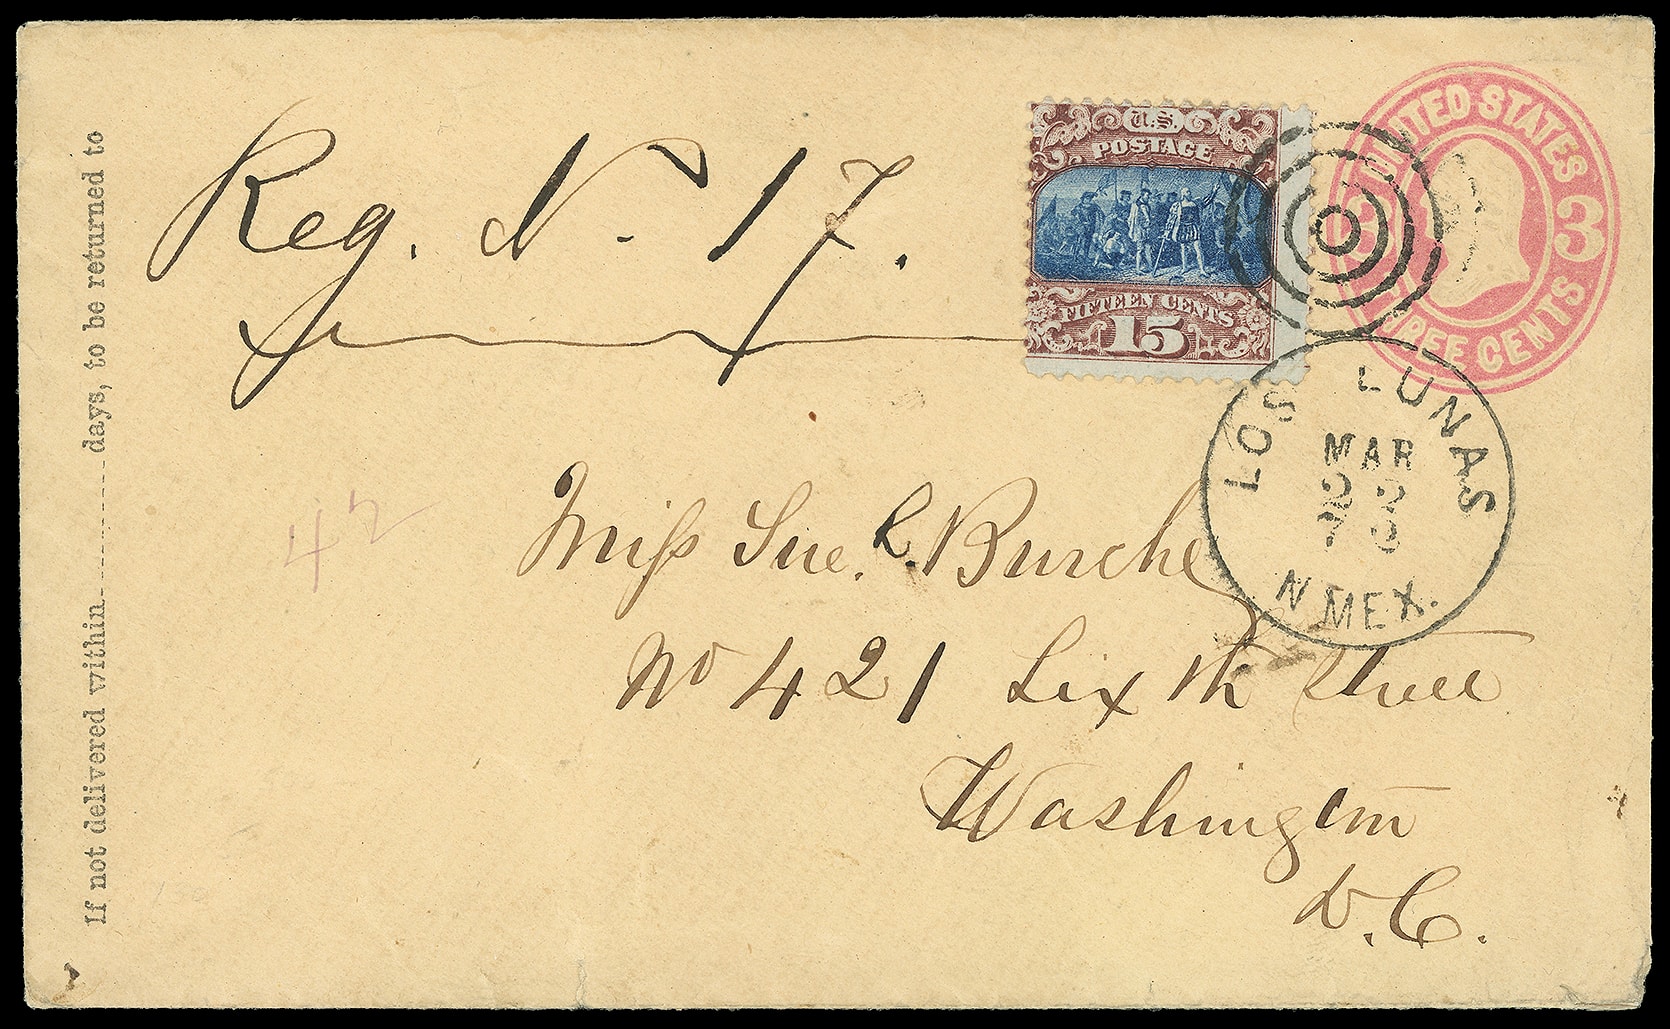 If not delivered within ........ days, to be returned to
Reg. No. 17.
U.S.
POSTAGE
FIFTEEN CENTS
15
UNITED STATES
3 3
THREE CENTS
LOS LUNAS
MAR
22
70
N MEX.
42
Miss Sue. R. Burche
No 421 Sixth Street
Washington
D.C.